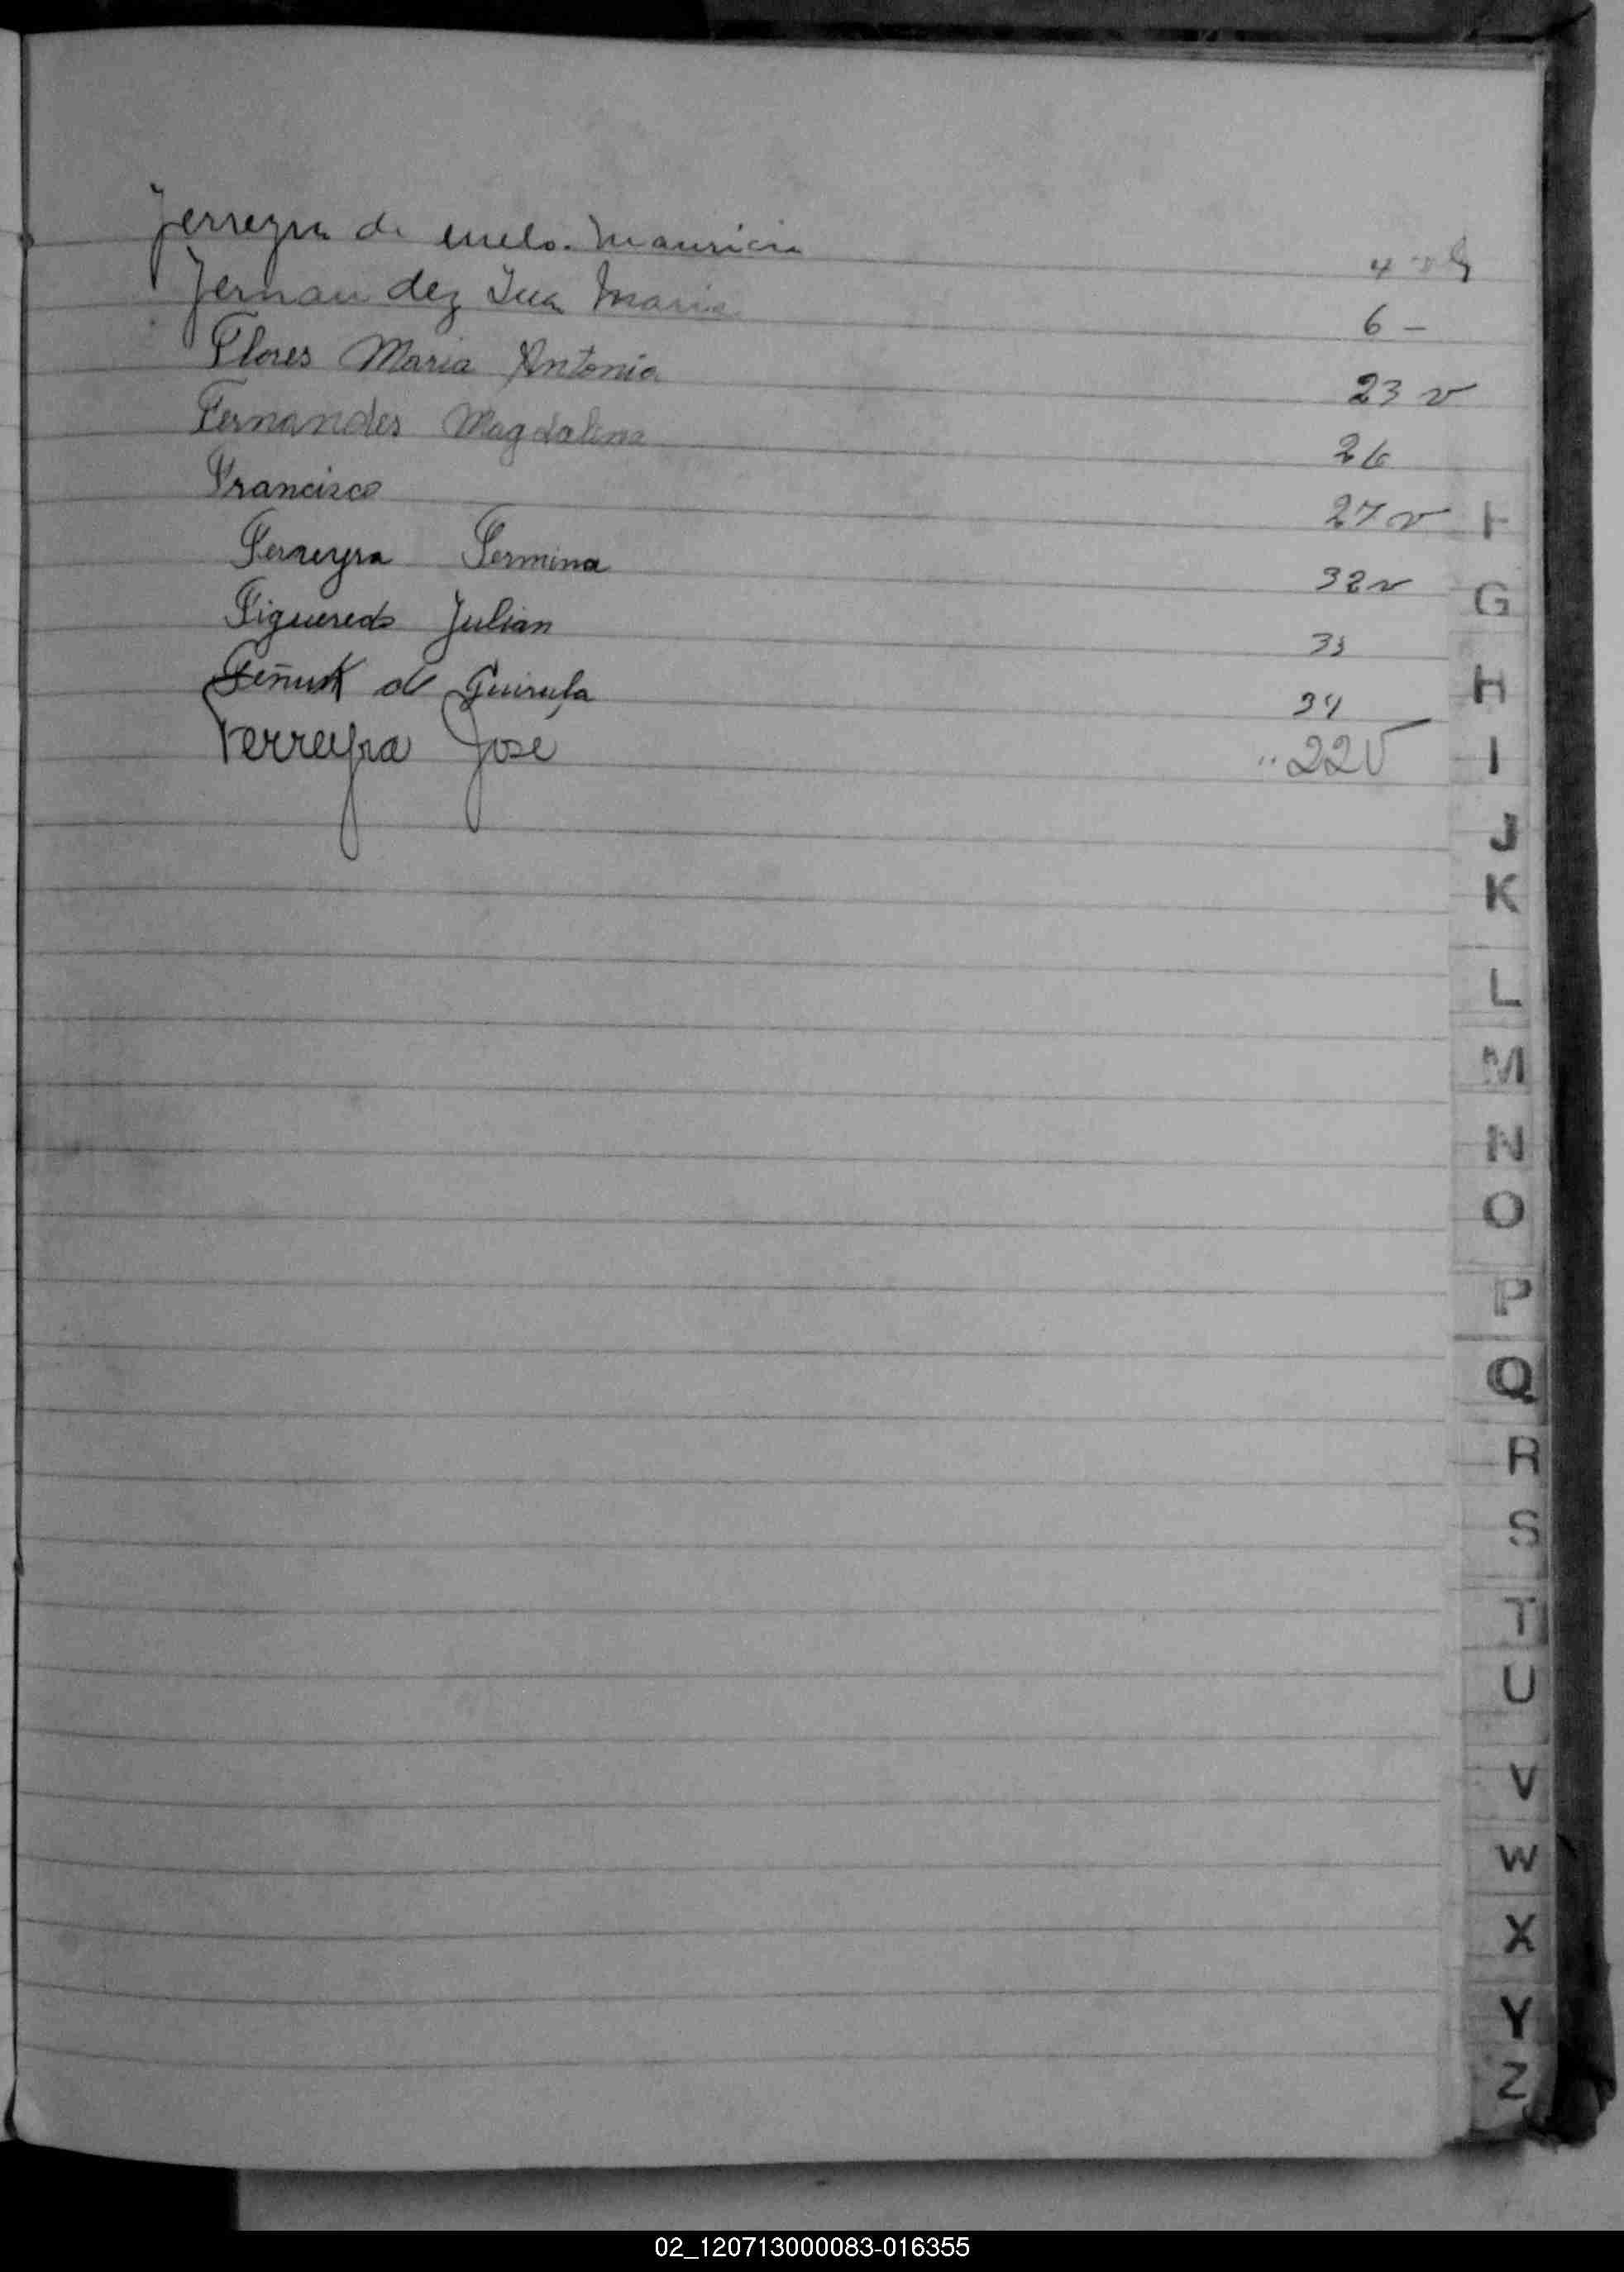 Ferreyra de melo. Mauricia 4 vlt
Fernandez Jua Maria 6 -
Flores Maria Antonia 23 v
Fernandes Magdalena 26
Francisco 27 v
Ferreyra Fermina 32 v
Figueredo Julian 33
de Guirula 34
Ferreyra José " 22 v
F
G
H
I
J
K
L
M
N
O
P
Q
R
S
T
U
V
W
X
Y
Z
02_120713000083-016355